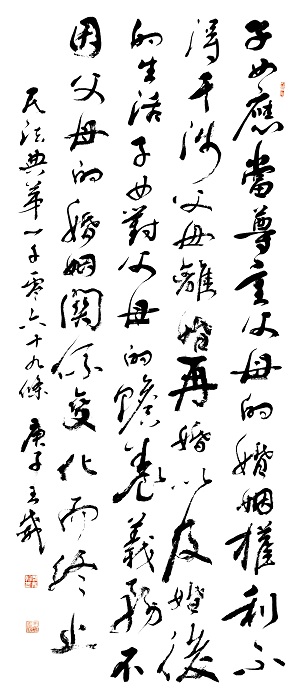 子女應當尊重父母的婚姻權利不
得干涉父母離婚再婚以及婚後
的生活子女對父母的贍養義務不
因父母的婚姻關係變化而終止
民法典第一千零六十九條 庚子